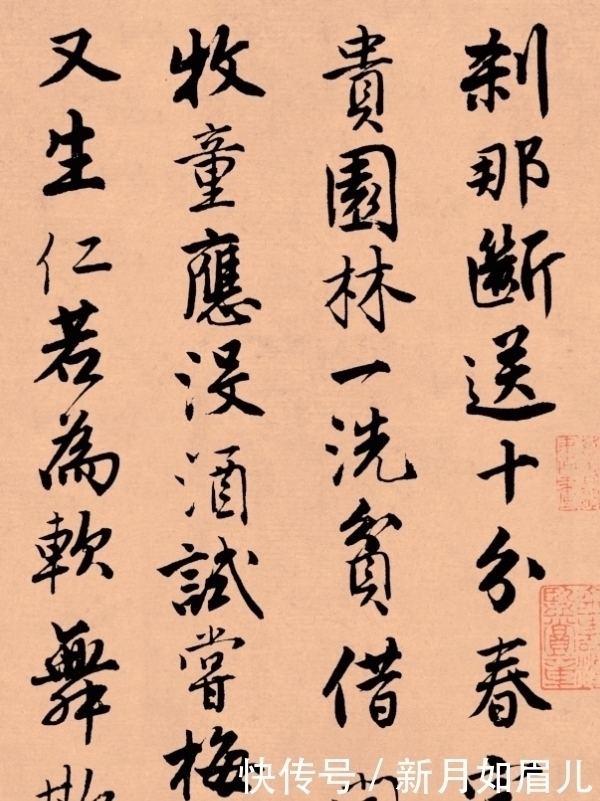 刹那斷送十分春
貴園林一洗貧借
牧童應没酒試嘗梅
又生仁若為軟舞
快传号 / 新月如眉儿